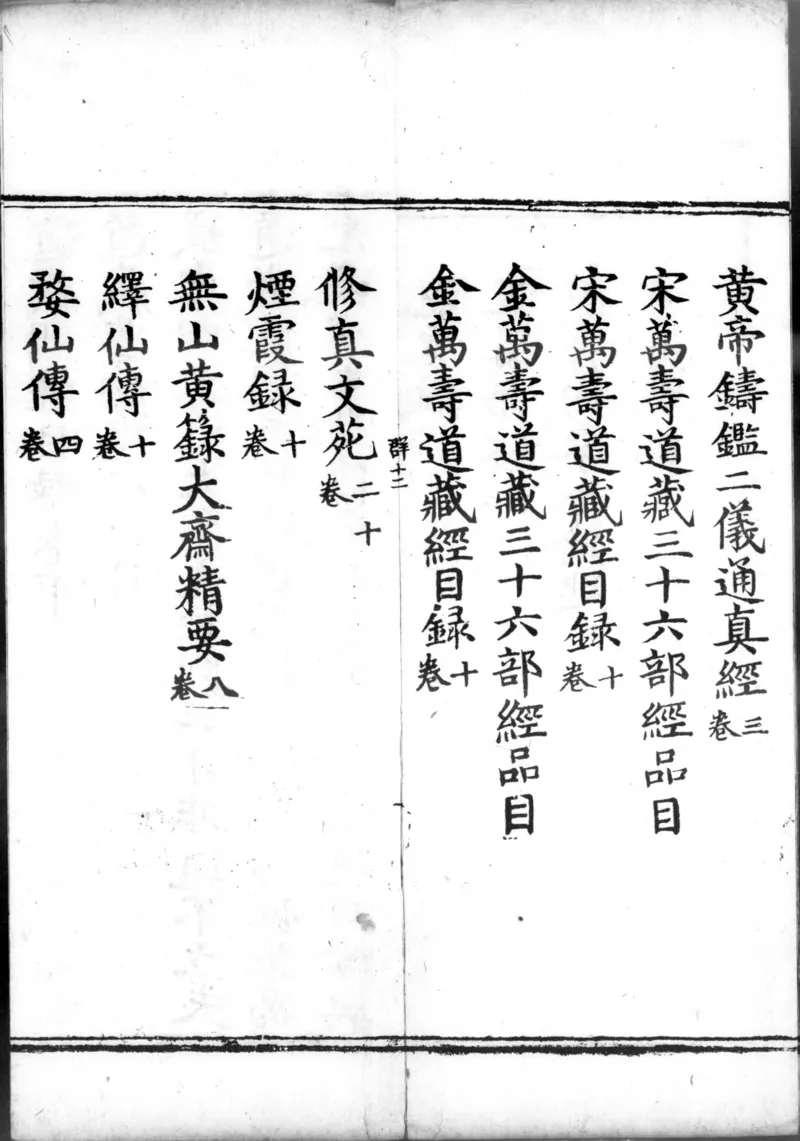 黄帝鑄鑑二儀通真經三卷
宋萬壽道藏三十六部經品目
宋萬壽道藏經目録十卷
金萬壽道藏三十六部經品目
金萬壽道藏經目録十卷
群十二
修真文苑二十卷
煙霞録十卷
無山黄籙大齋精要八卷
繹仙傳十卷
婺仙傳四卷